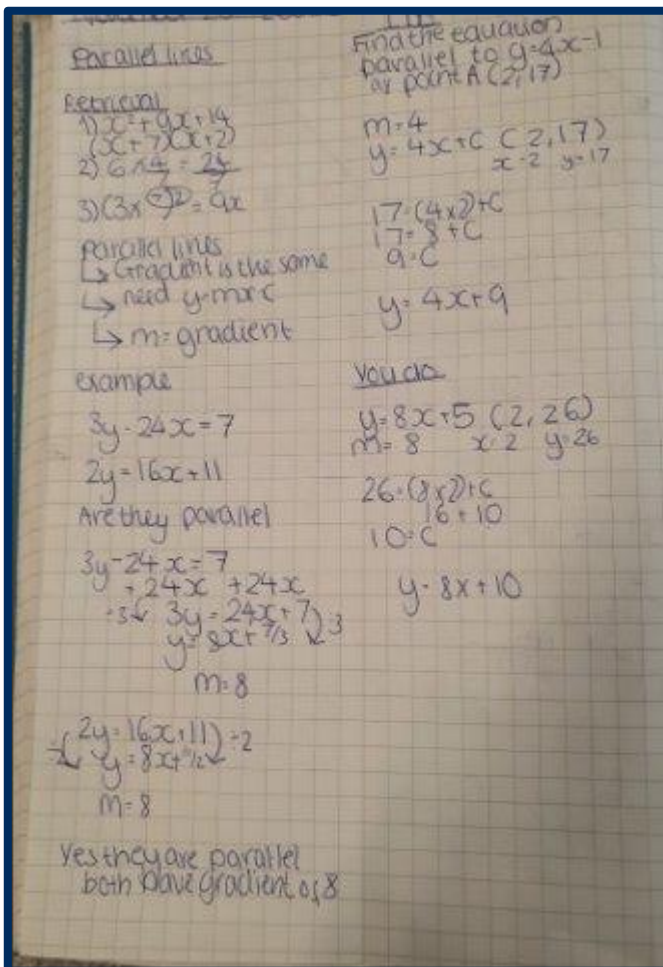 Parallel lines
Retrieval
1) x² + 9x + 14
(x + 7)(x + 2)
2) 6 × 4/7 = 24/7
= 9x
Parallel lines
↳ Gradient is the same
↳ need y=mx+c
↳ m= gradient
example
3y - 24x = 7
2y = 16x + 11
Are they parallel
3y - 24x = 7
+ 24x + 24x
÷3 3y = 24x + 7 ÷3
y = 8x + 7/3
m = 8
÷2 2y = 16x + 11 ÷2
y = 8x + 11/2
m = 8
Yes they are parallel
both have gradient of 8
Find the equation
parallel to y=4x-1
at point A (2, 17)
m = 4
y = 4x + C (2, 17)
x=2 y=17
17 = (4x2) + C
17 = 8 + C
9 = C
y = 4x + 9
You do
y = 8x + 5 (2, 26)
m = 8 x=2 y=26
26 = (8x2) + C
16 + 10
10 = C
y = 8x + 10